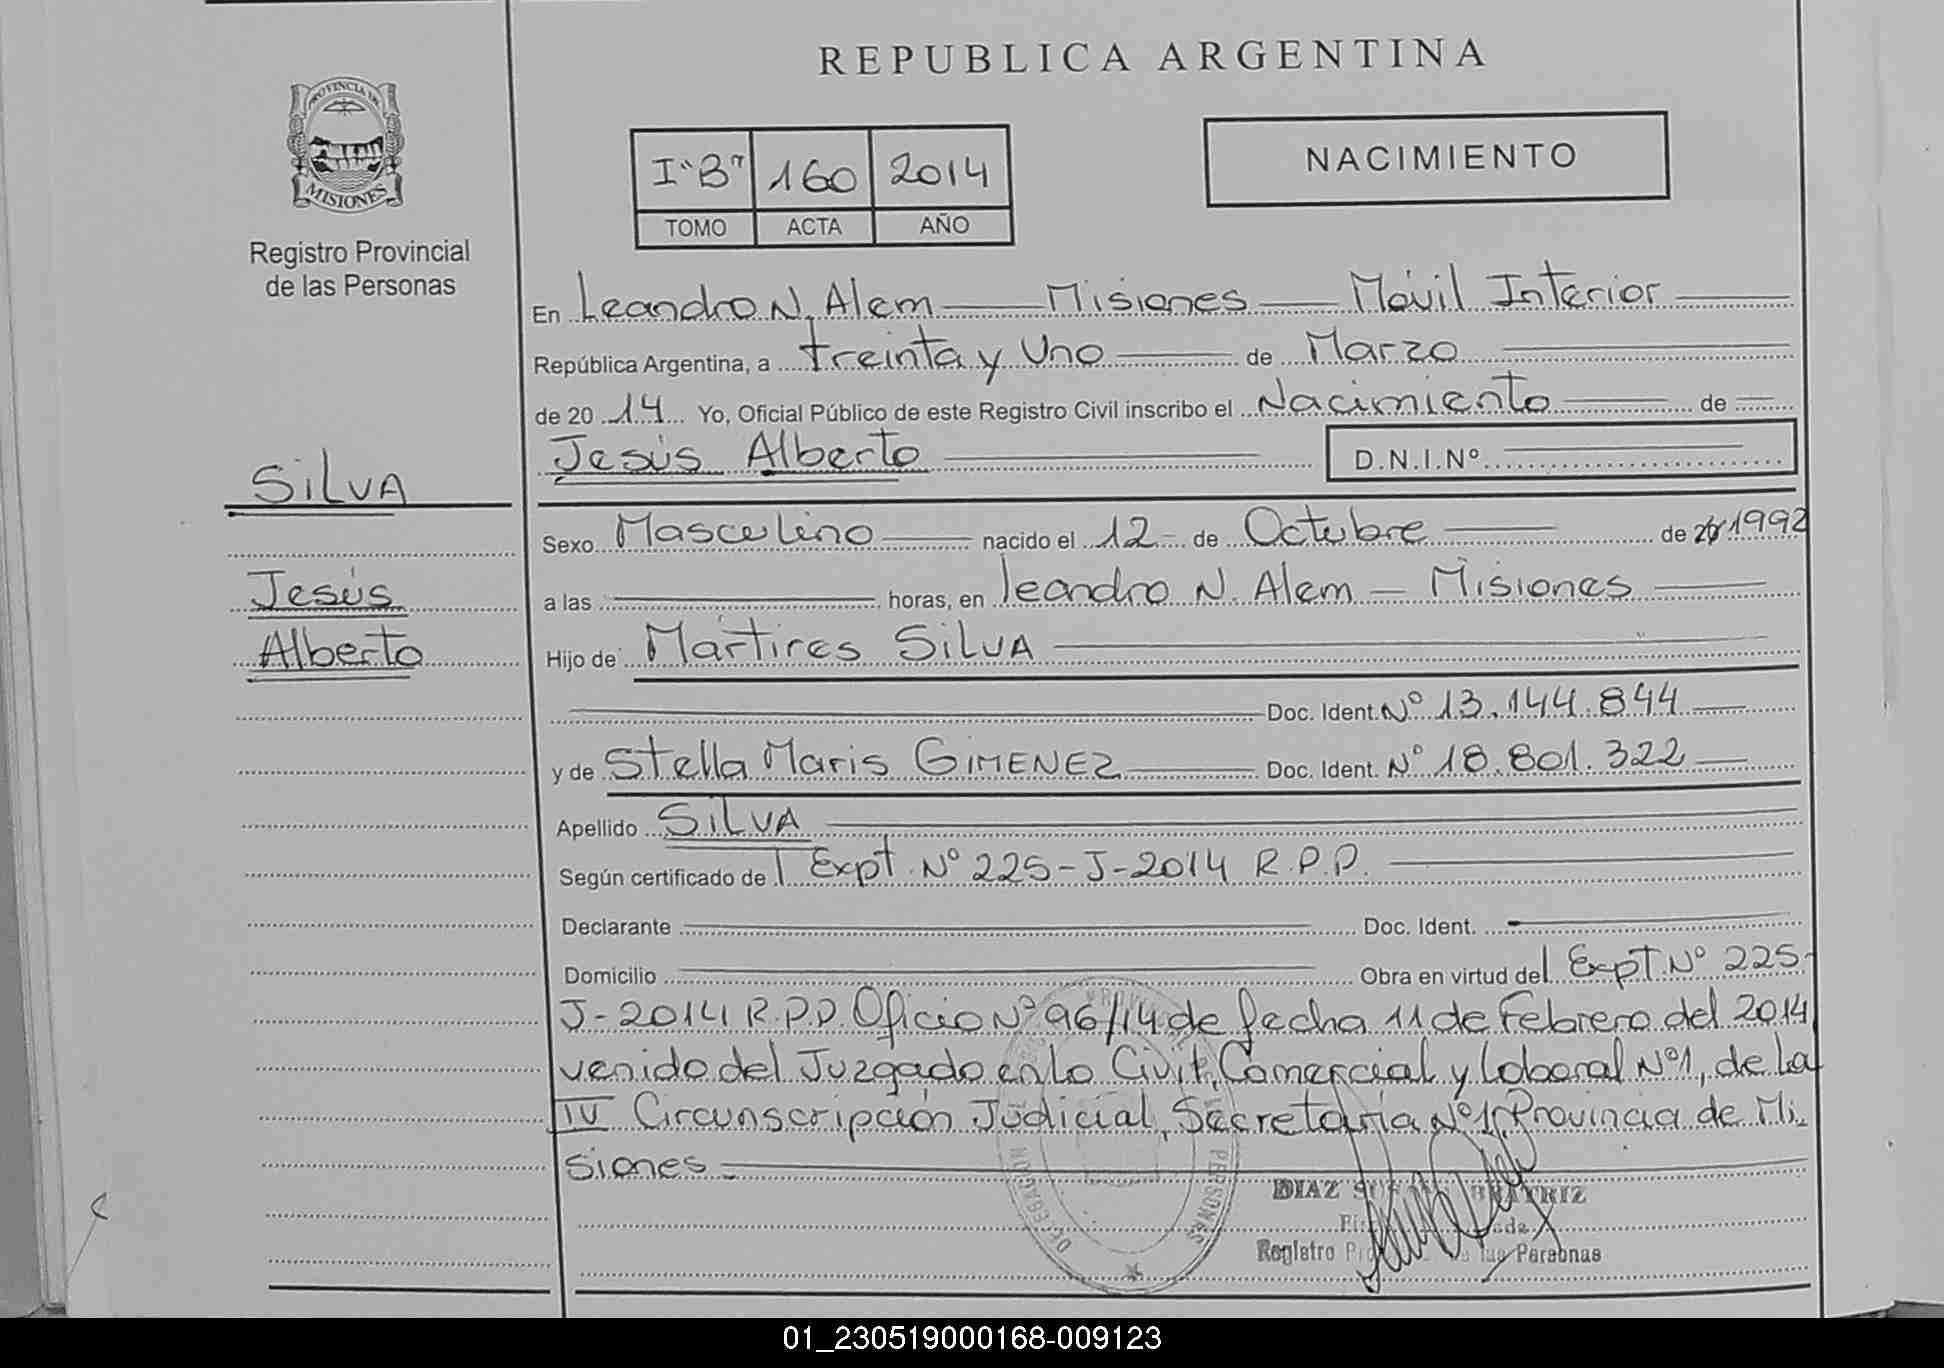 REPUBLICA ARGENTINA
PROVINCIA DE
MISIONES
Registro Provincial
de las Personas
I "B" 160 2014
TOMO ACTA AÑO
NACIMIENTO
En Leandro N. Alem Misiones Móvil Interior
República Argentina, a treinta y Uno de Marzo
de 2014 Yo, Oficial Público de este Registro Civil inscribo el Nacimiento de
Jesús Alberto D.N.I.Nº
SILVA
Jesús
Alberto
Sexo Masculino nacido el 12 de Octubre de 1992
a las horas, en Leandro N. Alem - Misiones
Hijo de Martires SILVA
Doc. Ident. Nº 13.144.844
y de Stella Maris GIMENEZ Doc. Ident. Nº 18.801.322
Apellido SILVA
Según certificado de l Expt. Nº 225-J-2014 R.P.P.
Declarante Doc. Ident.
Domicilio Obra en virtud del Expt. Nº 225-
J-2014 R.P.P. Oficio Nº 96/14 de fecha 11 de Febrero del 2014
venido del Juzgado en lo Civil, Comercial y Laboral Nº1, de la
IV Circunscripción Judicial, Secretaría Nº1, Provincia de Mi-
siones
DIAZ BEATRIZ
Registro de las Personas
01_230519000168-009123